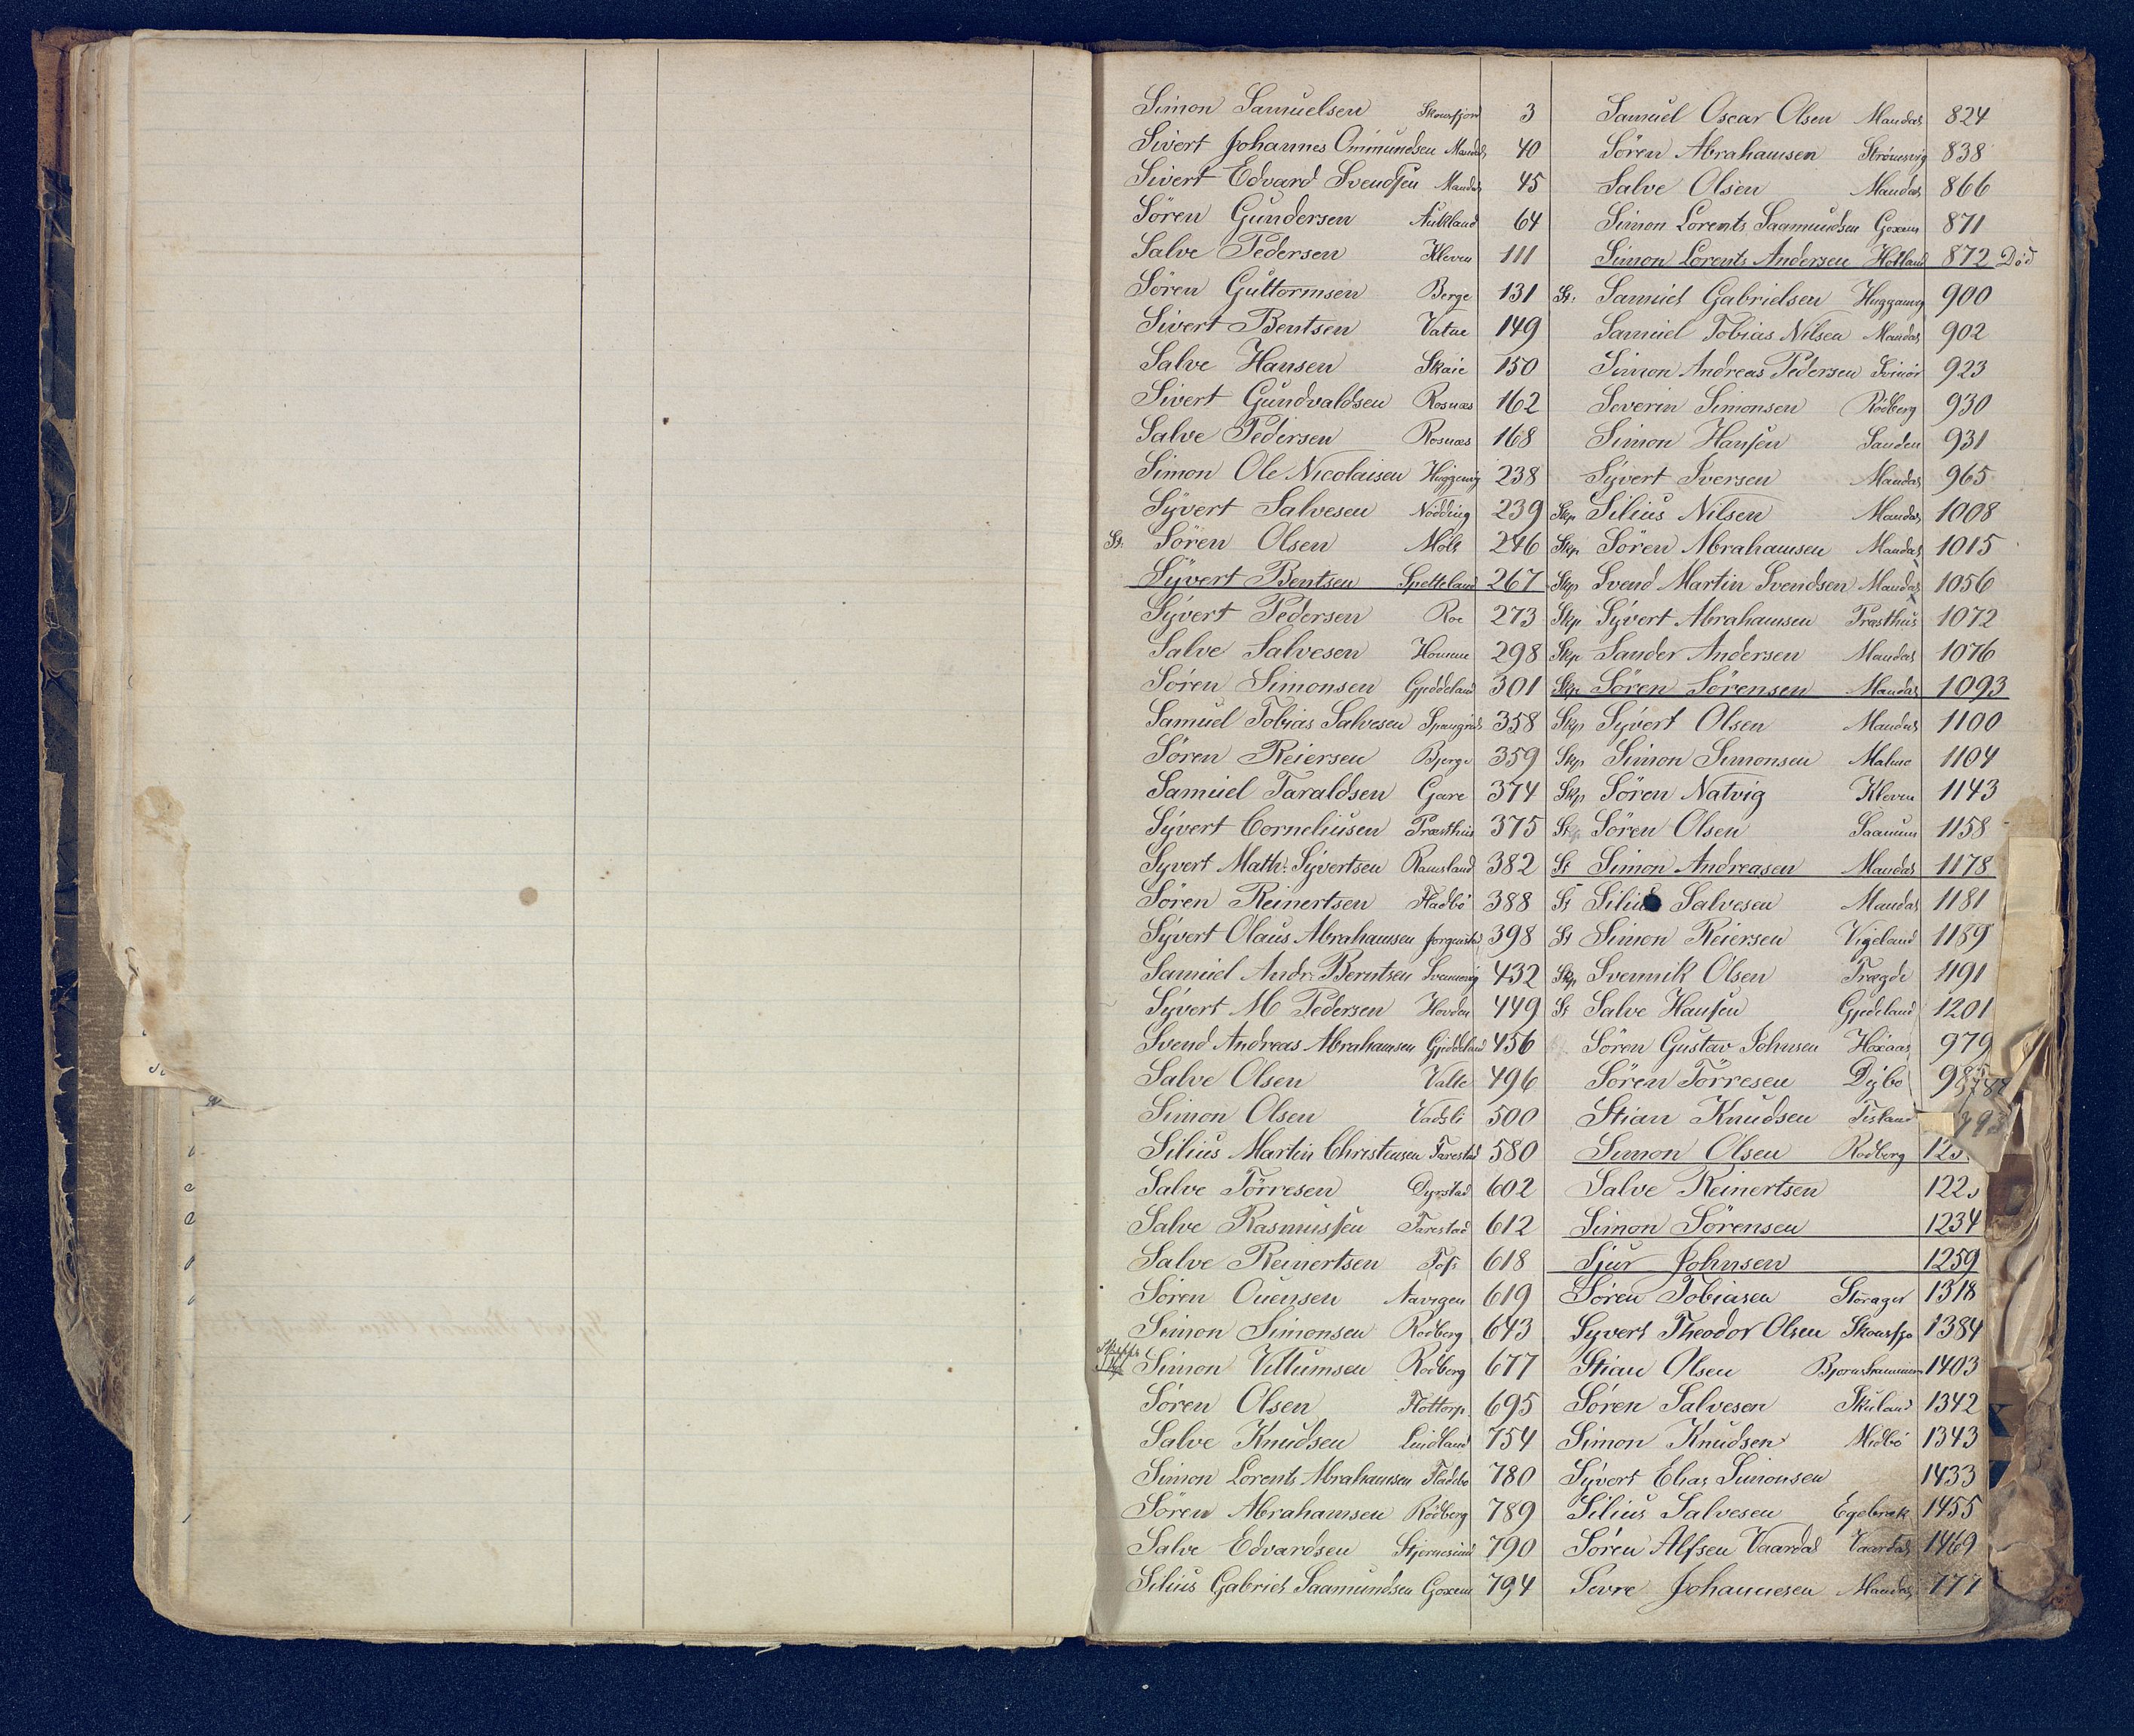 Simon Samuelsen Skousfjord 3
Sivert Johannes Ommundsen Mandal 40
Sivert Edvard Svendsen Mandal 45
Sören Gundersen Aukland 64
Salve Pedersen Kleven 111
Sören Guttormsen Berge 131
Sivert Bentsen Vatne 149
Salve Hansen Skaie 150
Sivert Gundvaldsen Rosnæs 162
Salve Pedersen Rosnæs 168
Simon Ole Nicolaisen 238
Syvert Salvesen Nödding 239
St. Sören Olsen 246
Syvert Bentsen Spetteland 267
Syvert Pedersen Roe 273
Salve Salvesen Homme 298
Sören Simonsen Gjeddeland 301
Samuel Tobias Salvesen 358
Sören Reiersen Bjerge 359
Samuel Taraldsen Gare 374
Syvert Corneliusen Præsthus 375
Syvert Math: Syvertsen Ramsland 382
Sören Reinertsen Fladbö 388
Syvert Olaus Abrahamsen 398
Samuel Andr: Berntsen 432
Syvert M Pedersen Hovden 449
Svend Andreas Abrahamsen Gjeddeland 456
Salve Olsen Valle 496
Simon Olsen Vadsli 500
Silius Martin Christensen Farestad 580
Salve Törresen Dyrstad 602
Salve Rasmussen Farestad 612
Salve Reinertsen 618
Sören Ouensen Navigen 619
Simon Simonsen Rodberg 643
Simon Villumsen Rodberg 677
Sören Olsen Flottorp 695
Salve Knudsen Lindland 754
Simon Lorents Abrahamsen Fladebo 780
Sören Abrahamsen Rödberg 789
Salve Edvardsen 790
Silius Gabriel Saamundsen Goxem 794
Samuel Oscar Olsen Mandal 824
Sören Abrahamsen Strömsvig 838
Salve Olsen Mandal 866
Simon Lorents Saamundsen Goxem 871
Simon Lorents Andersen Holland 872 Död
St. Samuel Gabrielsen 900
Samuel Tobias Nilsen Mandal 902
Simon Andreas Pedersen Svinör 923
Severin Simonsen Rödberg 930
Simon Hansen Sanden 931
Syvert Iversen Mandal 965
Skp Silius Nilsen Mandal 1008
Skp Sören Abrahamsen Mandal 1015
Skp Svend Martin Svendsen Mandal 1056
Skp Syvert Abrahamsen Præsthus 1072
Skp Sander Andersen Mandal 1076
Skp Sören Sörensen Mandal 1093
Skp Syvert Olsen Mandal 1100
Skp Simon Simonsen Malmo 1104
Skp Sören Natvig Kleven 1143
Sören Olsen Saanum 1158
St Simon Andreasen Mandal 1178
St Silius Salvesen Mandal 1181
St Simon Reiersen Vigeland 1189
Skp Svennik Olsen Trægde 1191
St Salve Hansen Gjedeland 1201
Sören Gustav Johnsen Höxaas 979
Sören Törresen Dybo
Stian Knudsen
Simon Olsen Rodberg
Salve Reinertsen
Simon Sörensen 1234
Sjur Johnsen 1259
Sören Tobiasen Storager 1318
Syvert Theodor Olsen 1384
Stian Olsen 1403
Sören Salvesen Skuland 1342
Simon Knudsen Midbö 1343
Syvert Elias Simonsen 1433
Silius Salvesen Egebrek 1455
Sören Alfsen Vaardal Vaardal 1469
Sevre Johannesen Mandal 177